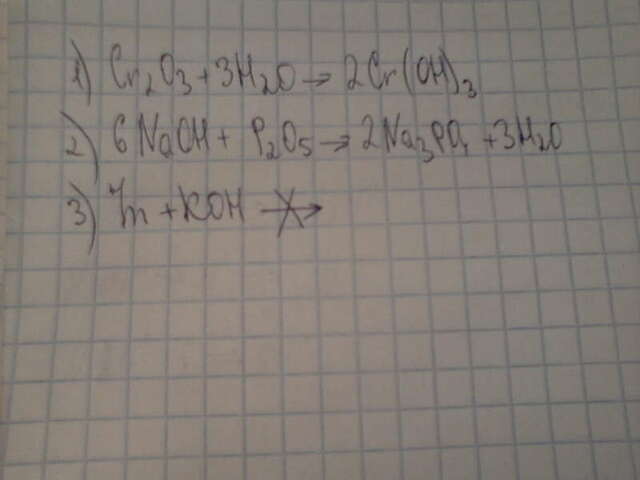 1) Cr₂O₃ + 3H₂O → 2Cr(OH)₃
2) 6NaOH + P₂O₅ → 2Na₃PO₄ + 3H₂O
3) Zn + KOH ↛